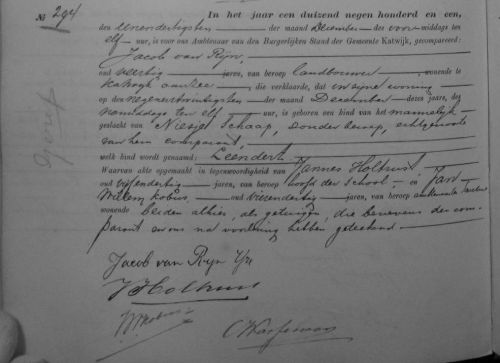 № 294
In het jaar een duizend negen honderd en een,
den eenendertigsten der maand December des voormiddags te
elf ure, is voor ons Ambtenaar van den Burgerlijken Stand der Gemeente Katwijk, gecompareerd:
Jacob van Rijn,
oud veertig jaren, van beroep landbouwer, wonende te
Katwijk aan Zee, die verklaarde, dat in zijne woning
op den negenentwintigsten der maand December dezes jaars, des
namiddags ten elf ure, is geboren een kind van het mannelijk
geslacht van Niesje Schaap, zonder beroep, echtgenoote
van hem comparant,
welk kind wordt genaamd: Leendert
Waarvan akte opgemaakt in tegenwoordigheid van Jannes Holtrust
oud jaren, van beroep hoofd der School, en Jan
Willem Kobus, oud jaren, van beroep
wonende beiden alhier, als getuigen, die benevens de com-
parant en ons na voorlezing hebben geteekend.
Jacob van Rijn